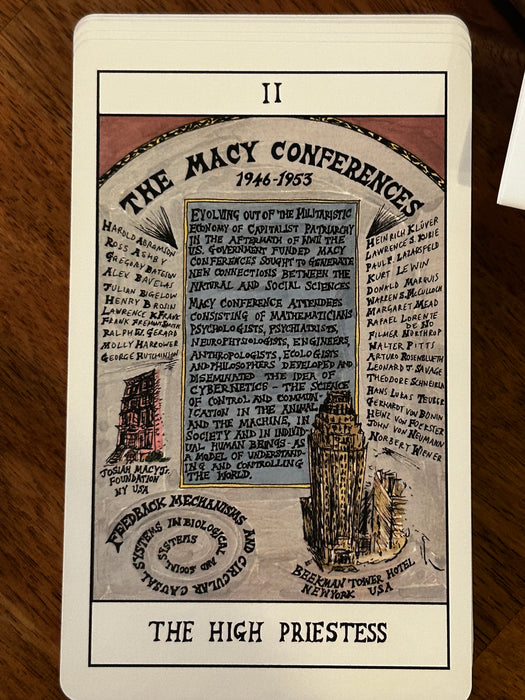 II
THE MACY CONFERENCES
1946-1953
HAROLD ABRAMSON
ROSS ASHBY
GREGORY BATESON
ALEX BAVELAS
JULIAN BIGELOW
HENRY BROSIN
LAWRENCE K FRANK
FRANK FREMONT SMITH
RALPH W. GERARD
MOLLY HARROWER
GEORGE HUTCHINSON
EVOLVING OUT OF THE MILITARISTIC
ECONOMY OF CAPITALIST PATRIARCHY
IN THE AFTERMATH OF WWII THE
U.S. GOVERNMENT FUNDED MACY
CONFERENCES SOUGHT TO GENERATE
NEW CONNECTIONS BETWEEN THE
NATURAL AND SOCIAL SCIENCES
MACY CONFERENCE ATTENDEES
CONSISTING OF MATHEMATICIANS
PSYCHOLOGISTS, PSYCHIATRISTS,
NEUROPHYSIOLOGISTS, ENGINEERS,
ANTHROPOLOGISTS, ECOLOGISTS
AND PHILOSOPHERS DEVELOPED AND
DISEMINATED THE IDEA OF
CYBERNETICS - THE SCIENCE
OF CONTROL AND COMMUN-
ICATION IN THE ANIMAL
AND THE MACHINE, IN
SOCIETY AND IN INDIVID-
UAL HUMAN BEINGS - AS
A MODEL OF UNDERSTAND-
ING AND CONTROLLING
THE WORLD.
HEINRICH KLÜVER
LAWRENCE S. KUBIE
PAUL P. LAZARSFELD
KURT LEWIN
DONALD MARQUIS
WARREN S. MCCULLOCH
MARGARET MEAD
RAFAEL LORENTE
DE NO
FILMER NORTHROP
WALTER PITTS
ARTURO ROSENBLUETH
LEONARD J. SAVAGE
THEODORE SCHNEIRLA
HANS LUKAS TEUBER
GERHARDT VON BONIN
HEINZ VON FOERSTER
JOHN VON NEUMANN
NORBERT WIENER
JOSIAH MACY JR.
FOUNDATION
NY USA
FEEDBACK MECHANISMS AND CIRCULAR CAUSAL SYSTEMS IN BIOLOGICAL AND SOCIAL SYSTEMS
BEEKMAN TOWER HOTEL
NEW YORK USA
THE HIGH PRIESTESS